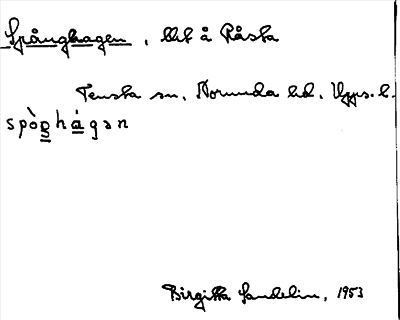 Spånghagen, lht å Råsta
Tensta sn, Norunda hd. Upps. l.
spòŋhágən
Birgitta Sandelin, 1953